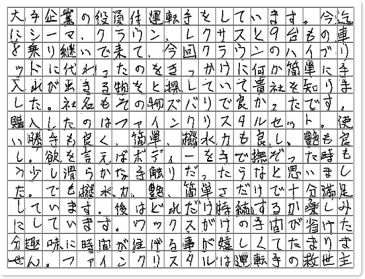 大手企業の役員付運転手をしています。今迄
にシーマ、クラウン、レクサスと9台もの車
を乗り継いで来て、今回クラウンのハイブリ
ッドに代わったのをきっかけに何か簡単に手
入れが出きる物をと探していて貴社を知りま
した。社名もその物ズバリで良かったです。
購入したのはファインクリスタルセット。使
い勝手も良く、簡単、撥水力も良し、艶も良
し。欲を言えばボディーを手で撫ぞった時も
う少し滑らかな手触りだったらなと思いまし
た。でも撥水力、艶、簡単さだけで十分満足
しています。後はどれだけ持続するか楽しみ
にしています。ワックスがけの手間が省けた
分趣味に時間が注げる事が嬉しくてたまりま
せん。ファインクリスタルは運転手の救世主